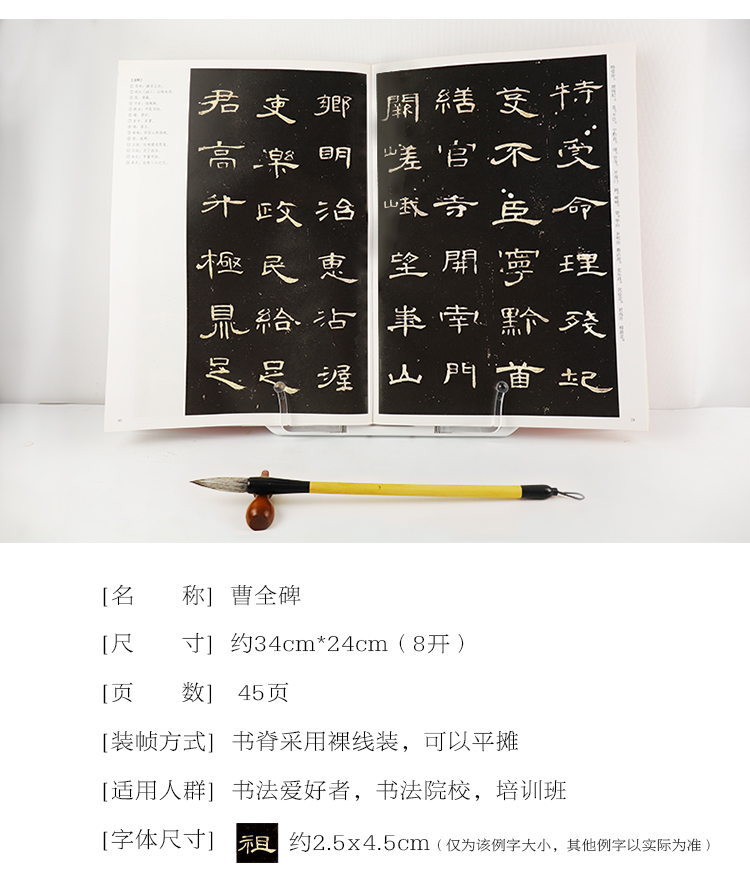 特受命理殘圮
芟不臣寧黔首
繕官寺開南門
闕嵯峨望華山
鄉明治惠沾渥
吏樂政民給足
君高升極鼎足
[名 称] 曹全碑
[尺 寸] 约34cm*24cm（8开）
[页 数] 45页
[装帧方式] 书脊采用裸线装，可以平摊
[适用人群] 书法爱好者，书法院校，培训班
[字体尺寸] 祖 约2.5x4.5cm（仅为该例字大小，其他例字以实际为准）